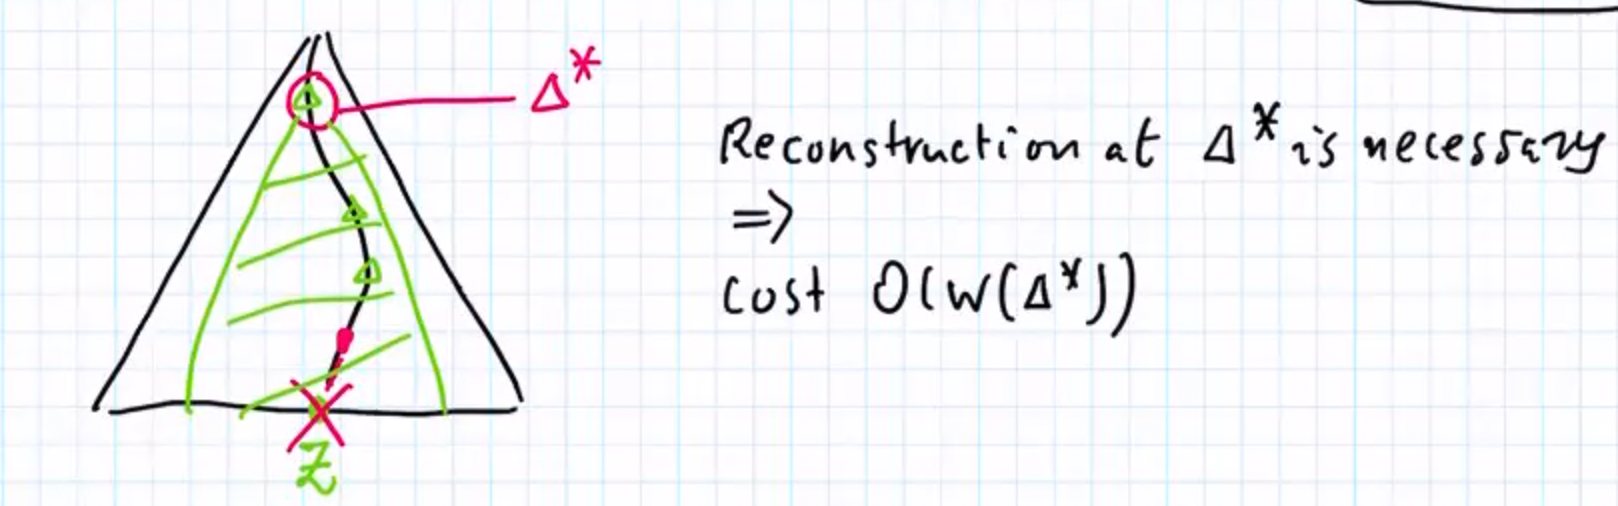 Δ*
Reconstruction at Δ* is necessary
=>
cost O(w(Δ*))
Z